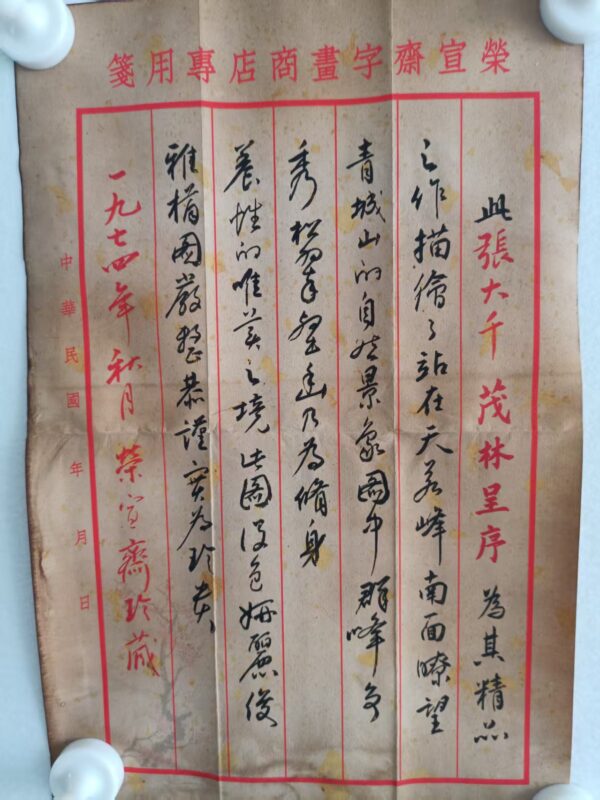 榮宣齋字畫商店專用箋
此張大千茂林呈序為其精品
之作描繪了站在天峰南面瞭望
青城山的自然景象圖中群峰争
秀松翠壑幽乃為脩身
養性的唯美之境此圖设色妍麗俊
雅構图嚴整恭謹实为珍贵
一九七四年秋月榮宣齋珍藏
中華民國 年 月 日